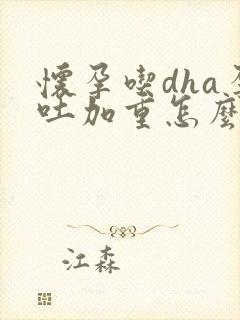 懷孕喫dha孕
吐加重怎麼
江森